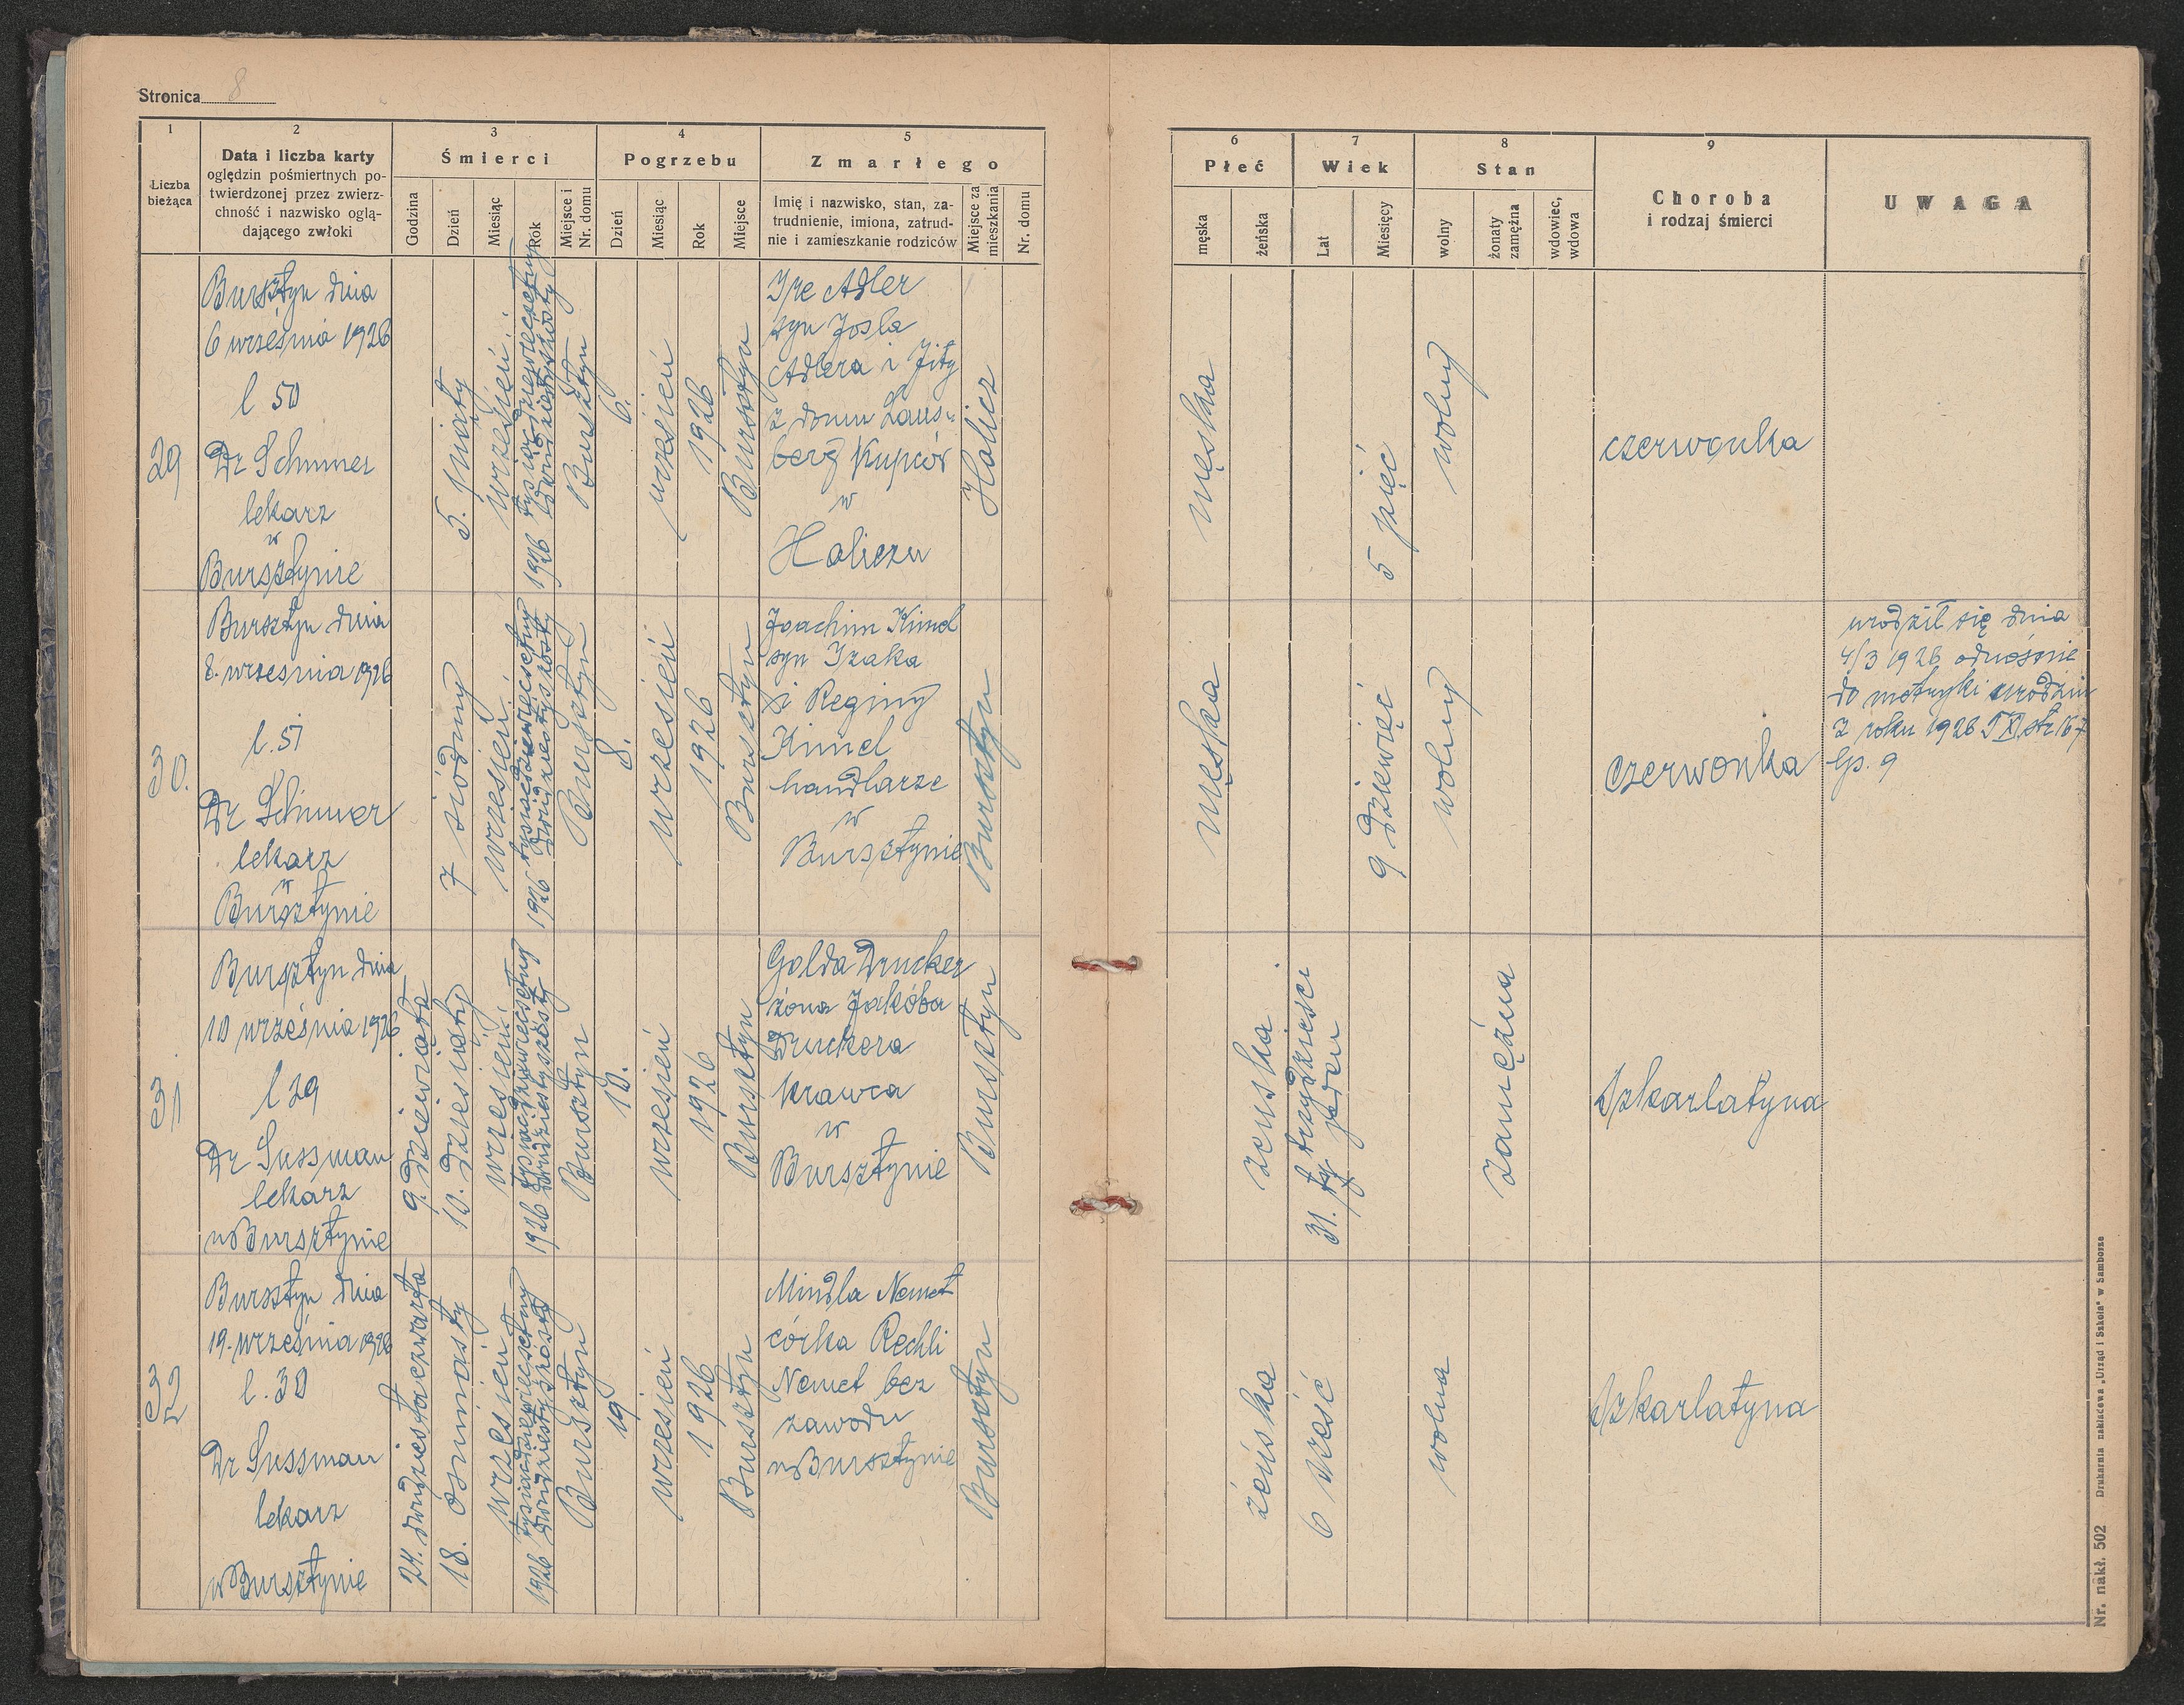 Stronica 8
1
2
3
4
5
6
7
8
9
Liczba
bieżąca
Data i liczba karty
oględzin pośmiertnych po-
twierdzonej przez zwierz-
chność i nazwisko oglą-
dającego zwłoki
Śmierci
Godzina
Dzień
Miesiąc
Rok
Miejsce i
Nr. domu
Pogrzebu
Dzień
Miesiąc
Rok
Miejsce
Zmarłego
Imię i nazwisko, stan, za-
trudnienie, imiona, zatrud-
nie i zamieszkanie rodziców
Miejsce za
mieszkania
Nr. domu
Płeć
męska
żeńska
Wiek
Lat
Miesięcy
Stan
wolny
żonaty
zamężna
wdowiec,
wdowa
Choroba
i rodzaj śmierci
UWAGA
29
Bursztyn dnia
6 września 1926
l 50
Dr Schmer
lekarz
w
Bursztynie
5. piąty
wrzesień
1926 tysiącdziewięćsetny
dwudziestyszósty
Bursztyn
6.
wrzesień
1926
Bursztyn
Adler
syn Josla
Adlera i Jity
z domu Laus-
berg Kupców
w
Haliczu
Halicz
męska
5 pięć
wolny
czerwonka
30.
Bursztyn dnia
8. wrzesnia 1926
l. 51
Dr Schmer
lekarz
w
Bursztynie
7 siódmy
wrzesień
1926 tysiącdziewięćsetny
dwudziestyszósty
Bursztyn
8.
wrzesień
1926
Bursztyn
Joachim Kimel
syn Izaka
i Reginy
Kimel
handlarze
w
Bursztynie
Bursztyn
męska
9 dziewięć
wolny
czerwonka
urodził się dnia
4/3 1926 odnośnie
do metryki urodzin
z roku 1926 str 167
lp. 9
31
Bursztyn dnia
10 września 1926
l 29
Dr Sussman
lekarz
w Bursztynie
9. dziewiąta
10. dziesiąty
wrzesień
1926 tysiącdziewięćsetny
dwudziestyszósty
Bursztyn
10.
wrzesień
1926
Bursztyn
Golda Drucker
żona Jakóba
Druckera
krawca
w
Bursztynie
Bursztyn
żeńska
31. trzydzieści
jeden
zamężna
szkarlatyna
32
Bursztyn dnia
19. września 1926
l. 30
Dr Sussman
lekarz
w Bursztynie
24. dwudziestaczwarta
18. osiemnasty
wrzesień
1926 tysiącdziewięćsetny
dwudziestyszósty
Bursztyn
19
wrzesień
1926
Bursztyn
Mindla Nemet
córka Rechli
Nemet bez
zawodu
w Bursztynie
Bursztyn
żeńska
6 sześć
wolna
szkarlatyna
Nr. nakł. 502 Drukarnia nakładowa „Urząd i Szkoła" w Samborze